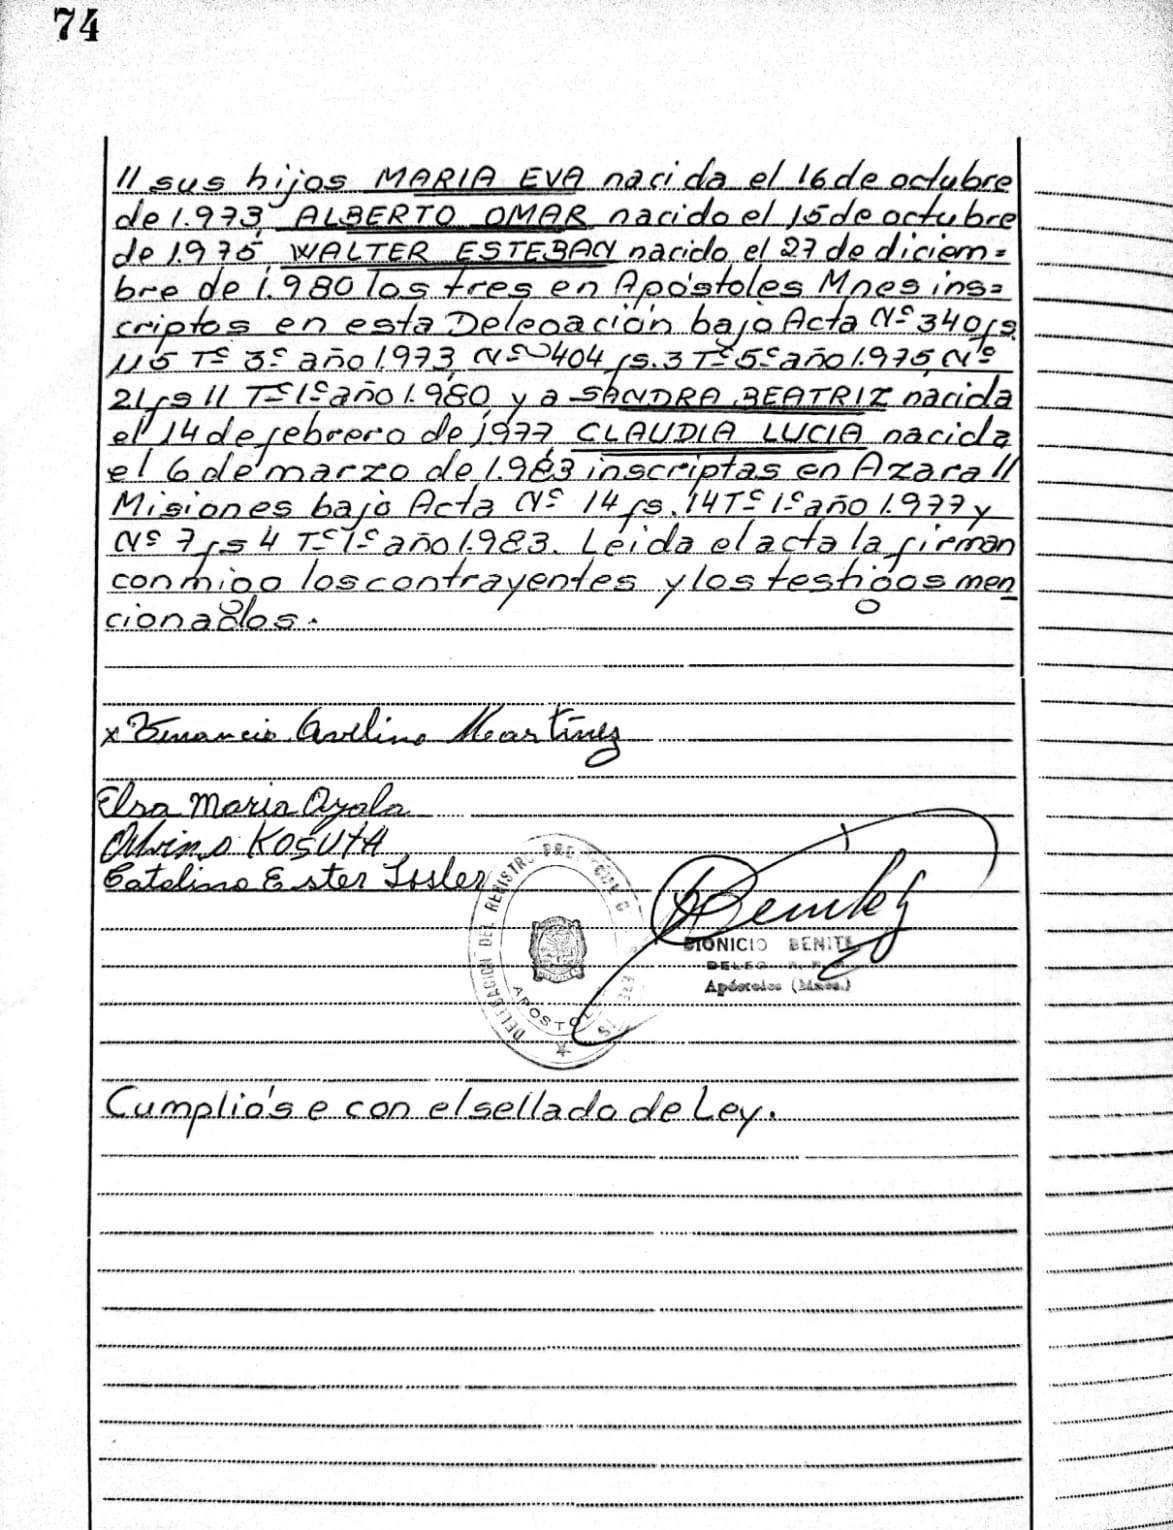 74
// sus hijos MARIA EVA nacida el 16 de octubre
de 1.973, ALBERTO OMAR nacido el 15 de octubre
de 1.975, WALTER ESTEBAN nacido el 27 de diciem=
bre de 1.980 los tres en Apóstoles Mnes ins=
criptos en esta Delegación bajo Acta Nº 340 fs.
115 Tº 3º año 1.973, Nº 404 fs. 3 Tº 5º año 1.975, Nº
21 fs 11 Tº 1º año 1.980, y a SANDRA BEATRIZ nacida
el 14 de febrero de 1977, CLAUDIA LUCIA nacida
el 6 de marzo de 1.983 inscriptas en Azara //
Misiones bajo Acta Nº 14 fs. 14 Tº 1º año 1.977 y
Nº 7 fs 4 Tº 1º año 1.983. Leida el acta la firman
conmigo los contrayentes y los testigos men
cionados.
x Venancio Avelino Martínez
Elsa Maria Ayala
KOSUTA
Catalina Ester
DELEGACION DEL REGISTRO
APOSTOL
Benitez
DIONICIO BENITEZ
DELEG
Apóstoles (Mnes.)
Cumplióse con el sellado de Ley.